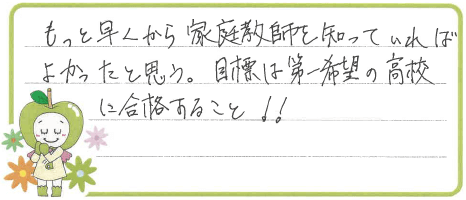 もっと早くから家庭教師を知っていれば
よかったと思う。目標は第一希望の高校
に合格すること!!